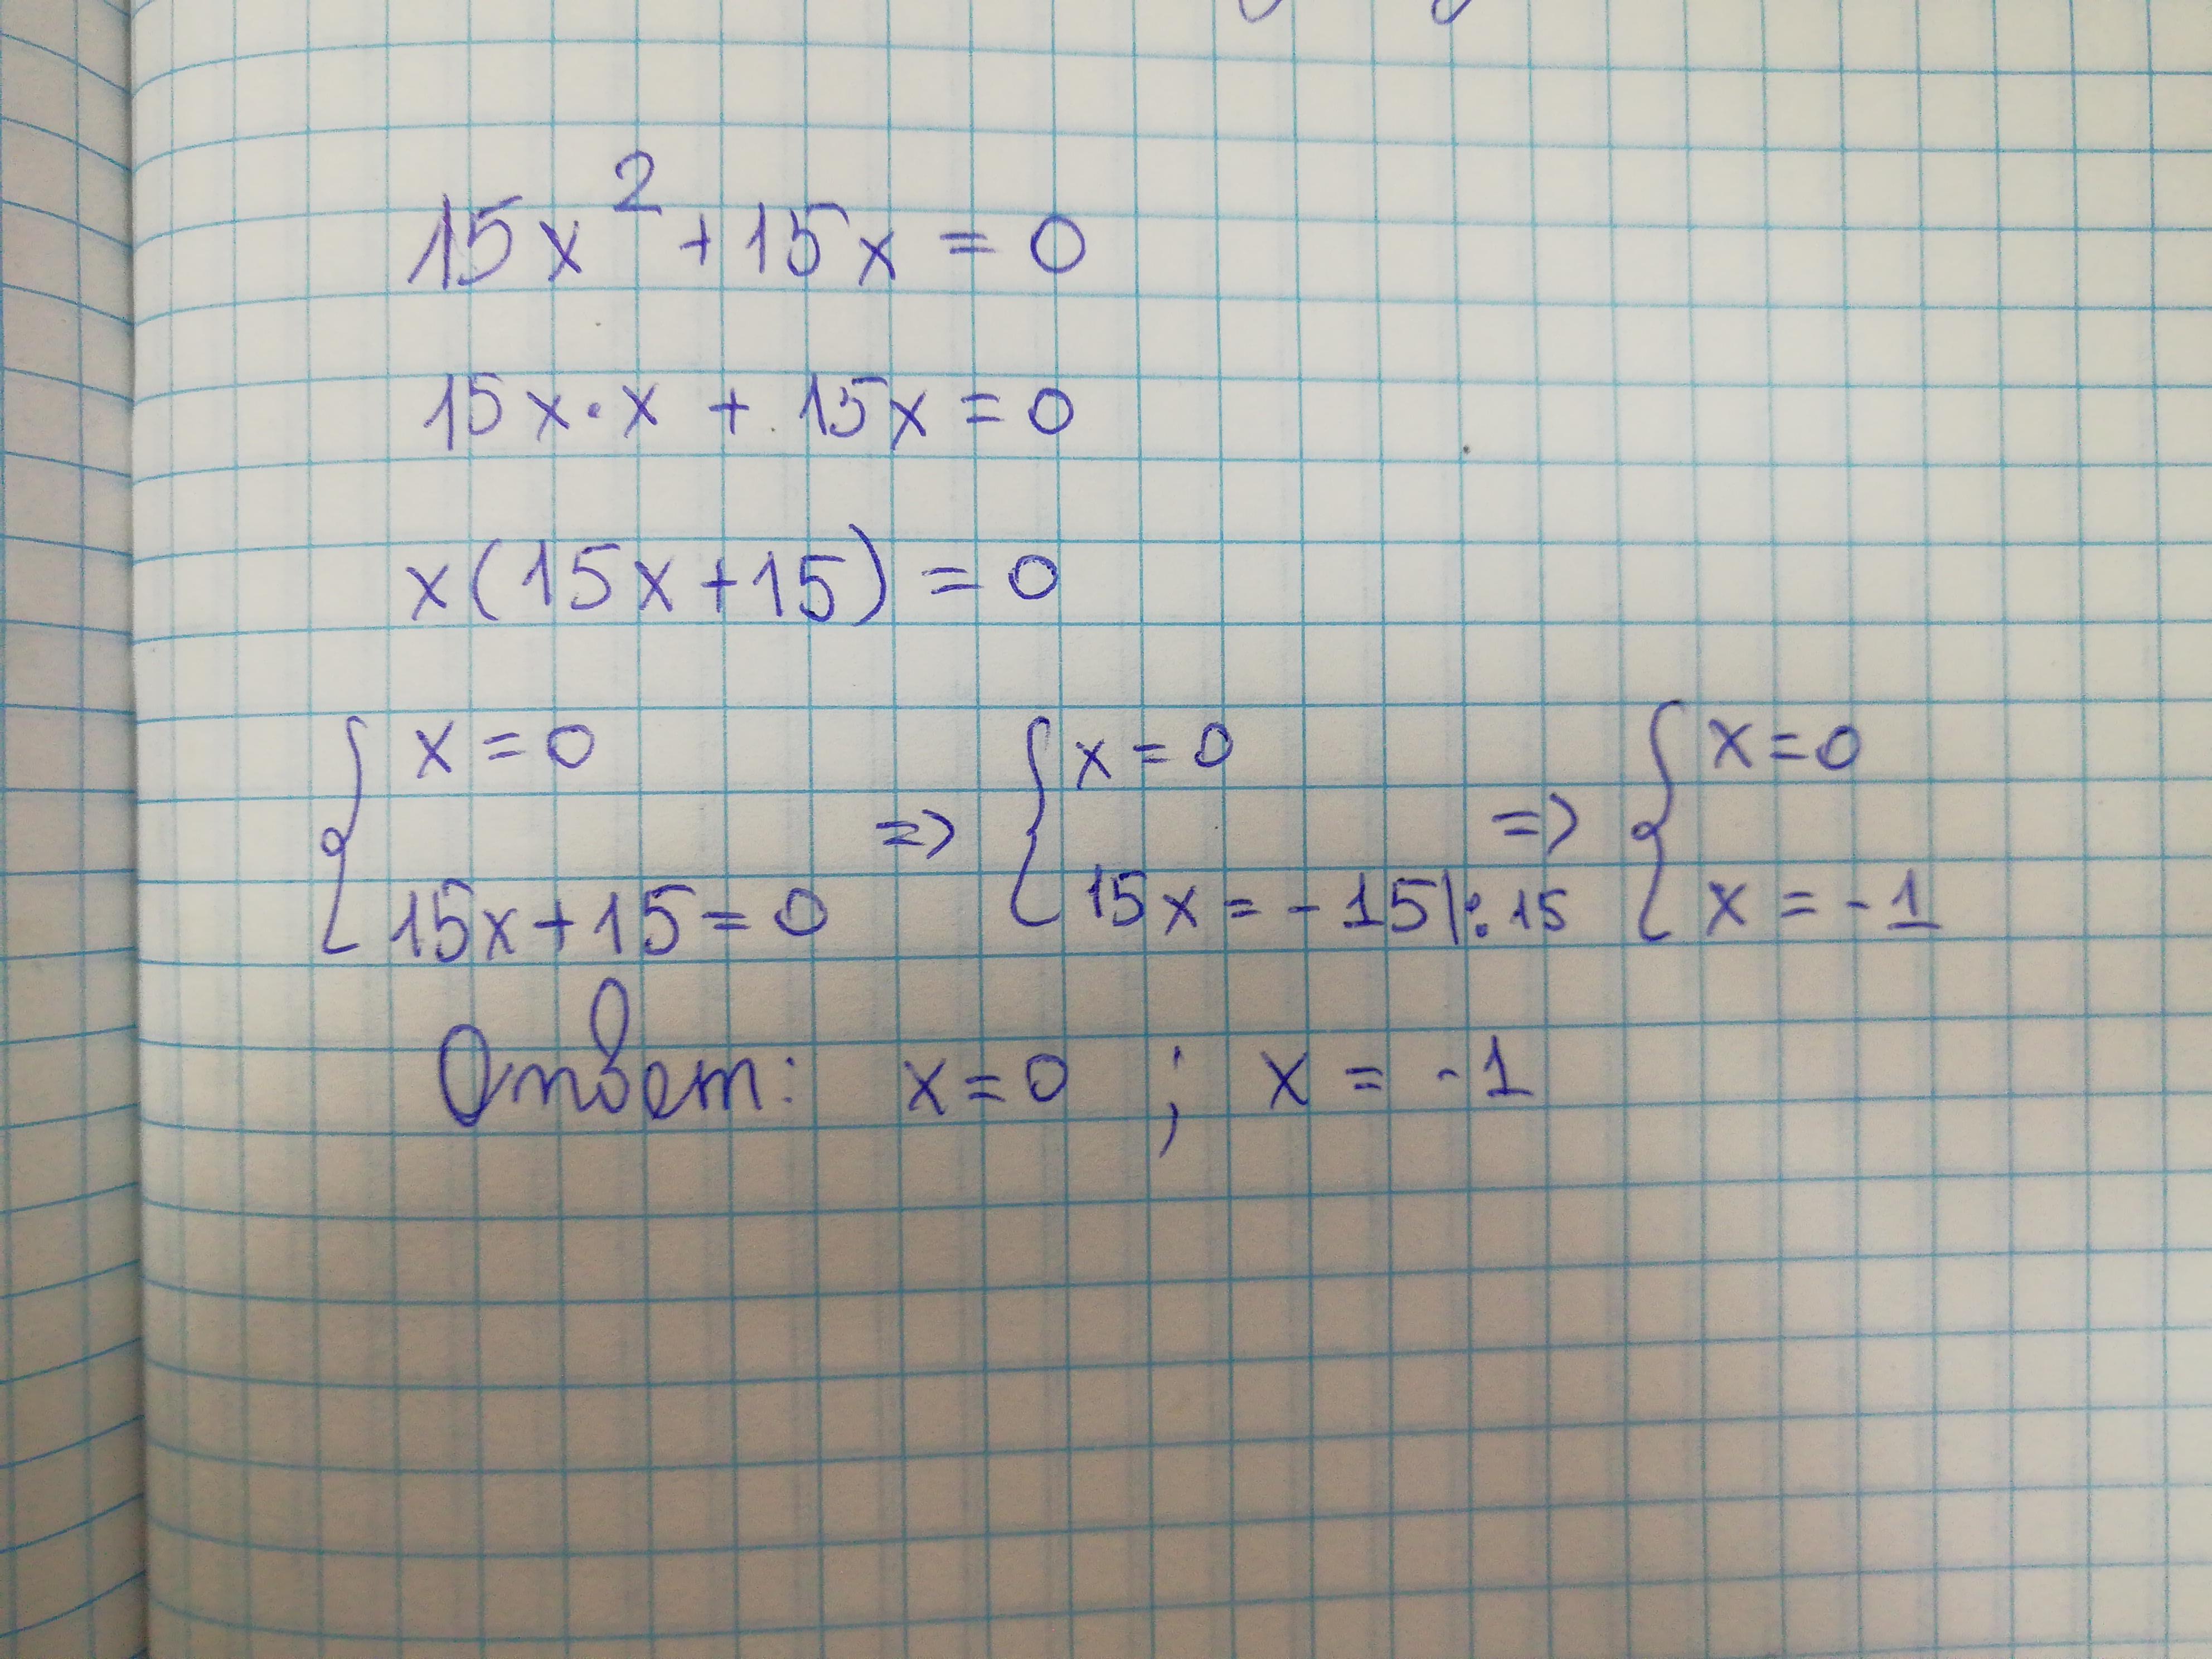 15x² + 15x = 0
15x · x + 15x = 0
x(15x + 15) = 0
{ x = 0 => { x = 0 => { x = 0
15x + 15 = 0 15x = -15 |: 15 x = -1
Ответ: x = 0 ; x = -1